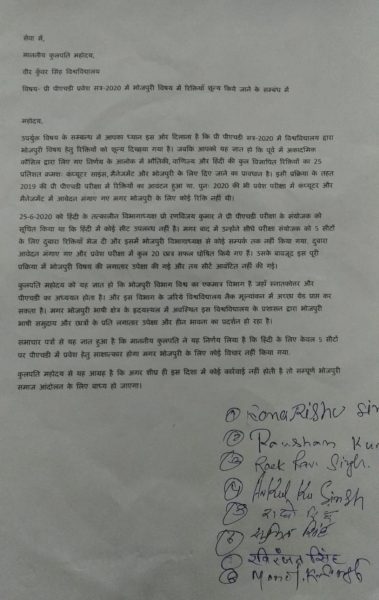 सेवा में,
माननीय कुलपति महोदय,
वीर कुँवर सिंह विश्वविद्यालय
विषय- प्री पीएचडी प्रवेश सत्र-2020 में भोजपुरी विषय में रिक्तियाँ शून्य किये जाने के सम्बन्ध में
महोदय,
उपर्युक्त विषय के सम्बन्ध में आपका ध्यान इस ओर दिलाना है कि प्री पीएचडी सत्र-2020 में विश्वविद्यालय द्वारा
भोजपुरी विषय हेतु रिक्तियों को शून्य दिखाया गया है। जबकि आपको यह ज्ञात हो कि पूर्व में अकादमिक
कौंसिल द्वारा लिए गए निर्णय के आलोक में भौतिकी, वाणिज्य और हिंदी की कुल विज्ञापित रिक्तियों का 25
प्रतिशत क्रमशः कंप्यूटर साइंस, मैनेजमेंट और भोजपुरी के लिए दिए जाने का प्रावधान है। इसी प्रक्रिया के तहत
2019 की प्री पीएचडी परीक्षा में रिक्तियों का आवंटन हुआ था. पुनः 2020 की भी प्रवेश परीक्षा में कंप्यूटर और
मैनेजमेंट में आवेदन मांगाए गए मगर भोजपुरी के लिए कोई रिक्ति नहीं थी।
25-6-2020 को हिंदी के तत्कालीन विभागाध्यक्ष प्रो रणविजय कुमार ने प्री पीएचडी परीक्षा के संयोजक को
सूचित किया था कि हिंदी में कोई सीट उपलब्ध नहीं है। मगर बाद में उन्होंने सीधे परीक्षा संयोजक को 5 सीटों
के लिए दुबारा रिक्तियां भेज दी और इसमें भोजपुरी विभागाध्यक्ष से कोई सम्पर्क तक नहीं किया गया. दुबारा
आवेदन मंगाए गए और प्रवेश परीक्षा में कुल 20 छात्र सफल घोषित किये गए हैं। उसके बावजूद इस पूरी
प्रक्रिया में भोजपुरी विषय की लगातार उपेक्षा की गई और तय सीटें आवंटित नहीं की गई।
कुलपति महोदय को यह ज्ञात हो कि भोजपुरी विभाग विश्व का एकमात्र विभाग है जहाँ स्नातकोत्तर और
पीएचडी का अध्ययन होता है। और इस विभाग के जरिये विश्वविद्यालय नैक मूल्यांकन में अच्छा ग्रेड प्राप्त कर
सकता है। मगर भोजपुरी भाषी क्षेत्र के हृदयस्थल में अवस्थित इस विश्वविद्यालय के प्रशासन द्वारा भोजपुरी
भाषी समुदाय और छात्रों के प्रति लगातार उपेक्षा और हीन भावना का प्रदर्शन हो रहा है।
समाचार पत्रों से यह ज्ञात हुआ है कि माननीय कुलपति ने यह निर्णय लिया है कि हिंदी के लिए केवल 5 सीटों
पर पीएचडी में प्रवेश हेतु साक्षात्कार होगा मगर भोजपुरी के लिए कोई विचार नहीं किया गया.
कुलपति महोदय से यह आग्रह है कि अगर शीघ्र ही इस दिशा में कोई कार्रवाई नहीं होती है तो सम्पूर्ण भोजपुरी
समाज आंदोलन के लिए बाध्य हो जाएगा।
① Sona Rishu Sin
② Raushan Ku
③ Singh.
④ Ankul Ku Singh
⑤
⑥ सिंह
⑦ रवि रंजन सिंह
⑧ Manoj. Kr. Singh